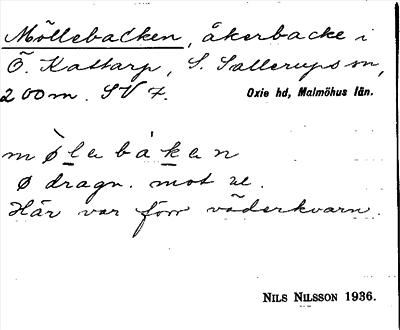 Möllebacken, åkerbacke i
Ö. Kattarp, S. Sallerups sn,
200 m. SV 7.
Oxie hd, Malmöhus län.
møl̲ebak̲en
ø dragn. mot œ.
Här var förr väderkvarn.
NILS NILSSON 1936.